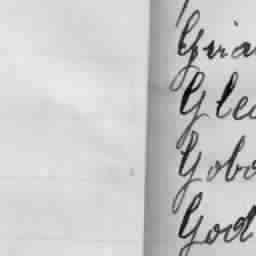 Gria
Glec
Gobo
God